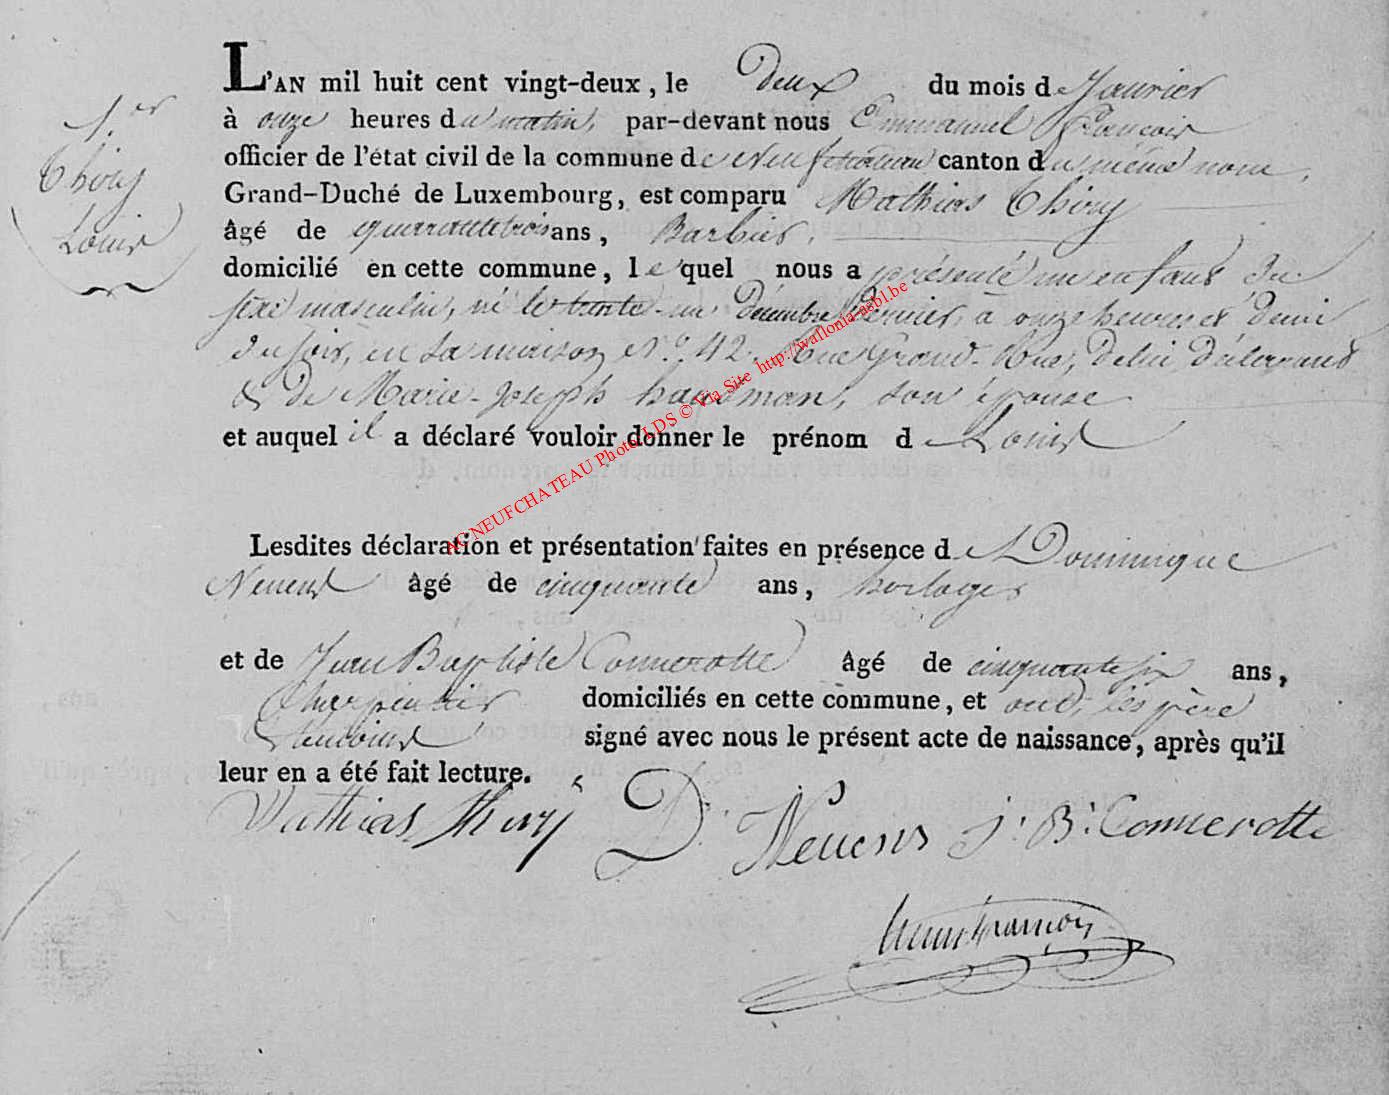 1.er
Thiry
Louis
L'AN mil huit cent vingt-deux, le Deux du mois de Janvier
à onze heures du matin, par-devant nous Emmanuel François
officier de l'état civil de la commune de Neufchateau canton du même nom,
Grand-Duché de Luxembourg, est comparu Mathias Thiry
âgé de quarante trois ans, Barbier,
domicilié en cette commune, lequel nous a présenté un enfant du
sexe masculin, né le trente-un Décembre Dernier, à onze heures et demi
du soir, en sa maison N.° 42. Rue Grand-Rue, de lui déclarant
& de Marie-Joseph hausman, son épouse
et auquel il a déclaré vouloir donner le prénom de Louis
Lesdites déclaration et présentation faites en présence de Dominique
Neuens âgé de cinquante ans, horloger
et de Jean Baptiste Connerotte âgé de cinquante six ans,
Charpentier domiciliés en cette commune, et ont, les père
& témoins signé avec nous le présent acte de naissance, après qu'il
leur en a été fait lecture.
Mathias thiry D. Neuens J. B. Connerotte
François
AC NEUFCHATEAU Photo LDS © Via Site http://wallonia-asbl.be